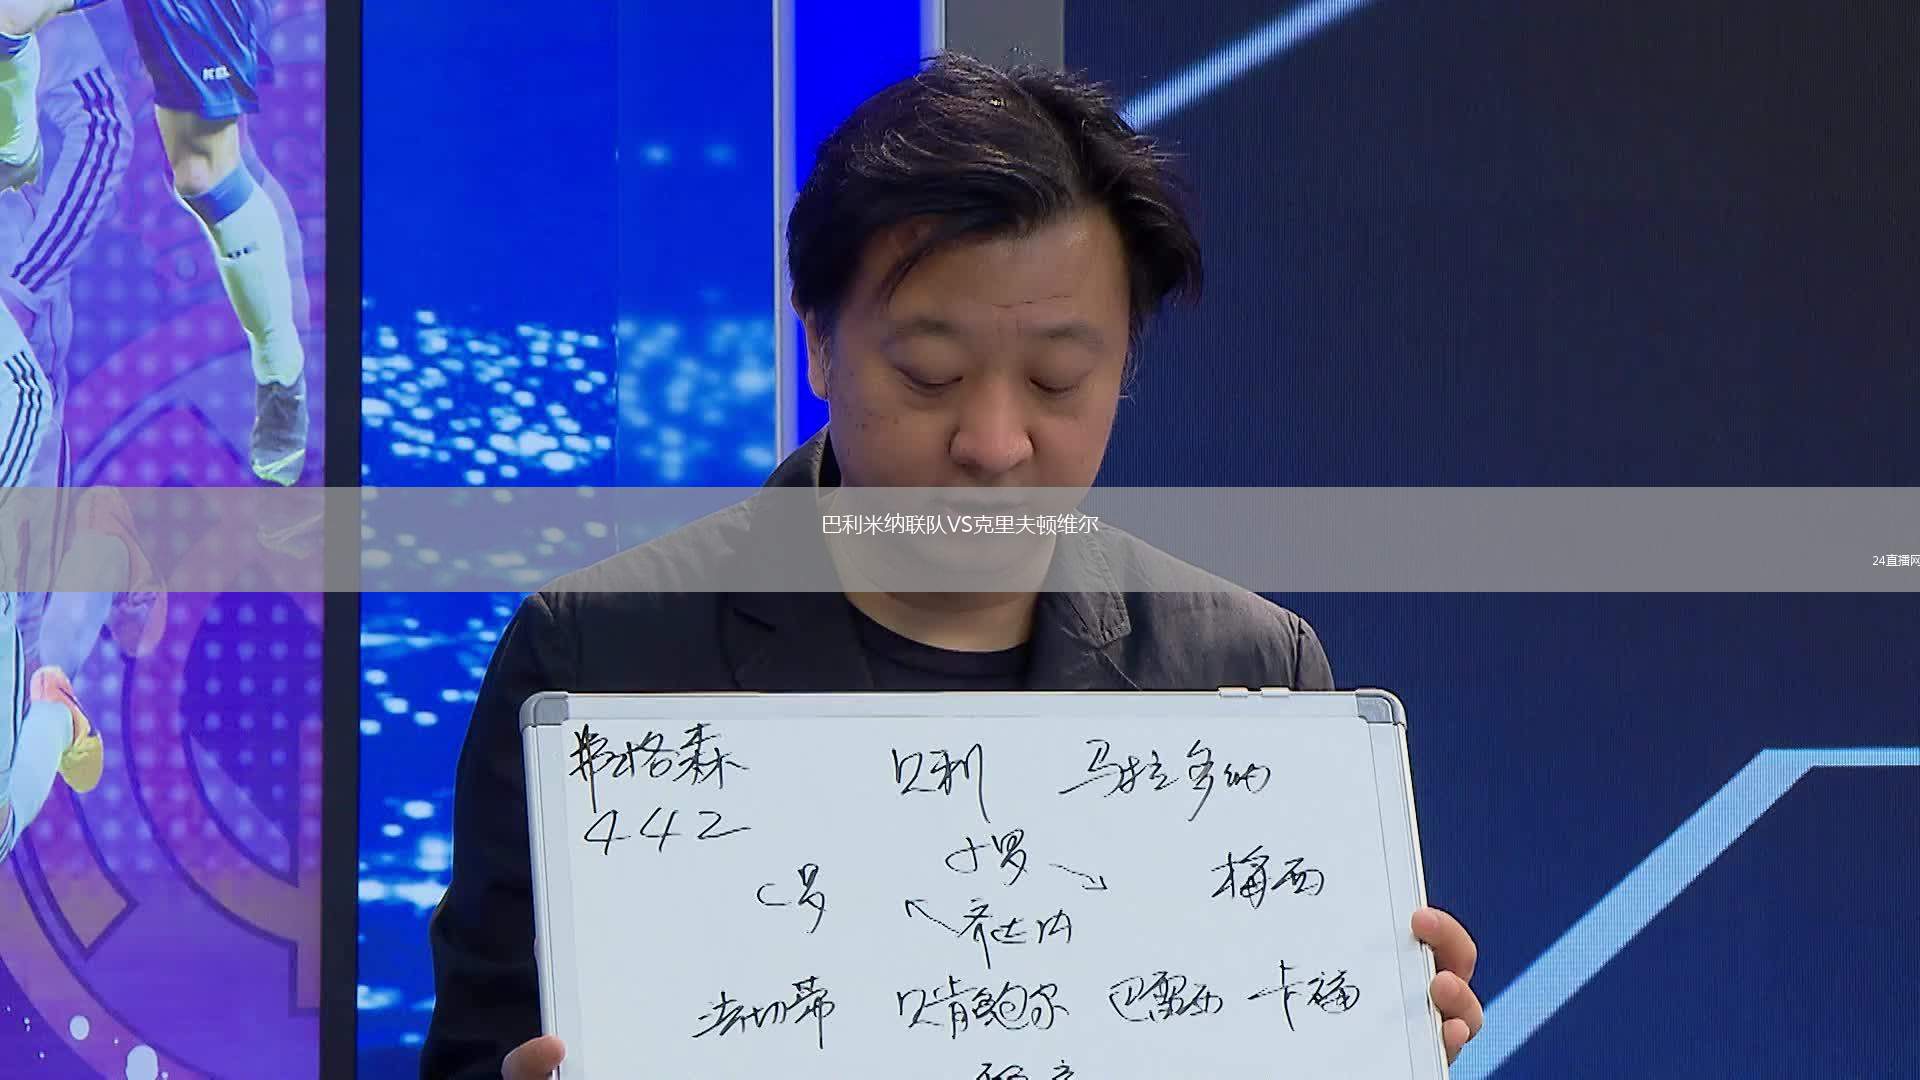 巴利米纳联队VS克里夫顿维尔
24直播网
弗格森 贝利 马拉多纳
442
小罗
C罗 梅西
齐达内
法切蒂 贝肯鲍尔 巴雷西 卡福